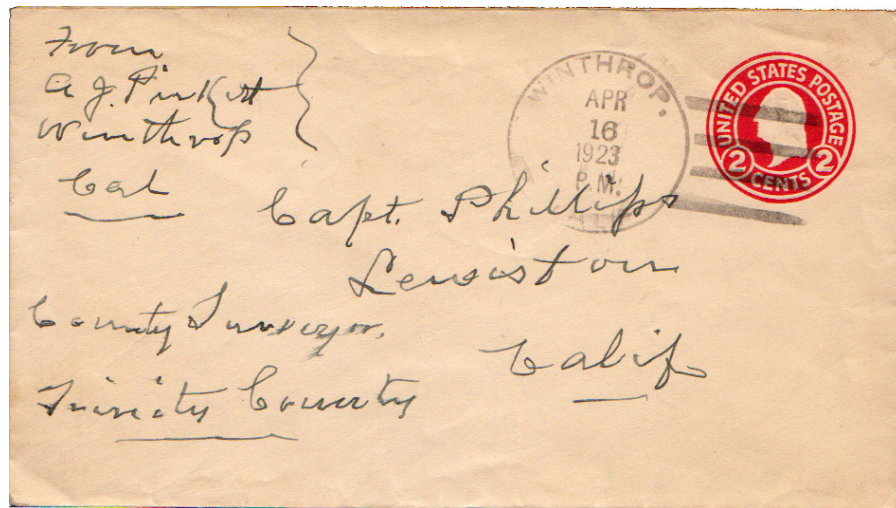 From
A J. Pinkert
Winthrop
Cal
WINTHROP.
APR
16
1923
P.M.
UNITED STATES POSTAGE
2 CENTS 2
Capt. Phillips
Lewiston
Calif
County Surveyor,
Trinity County